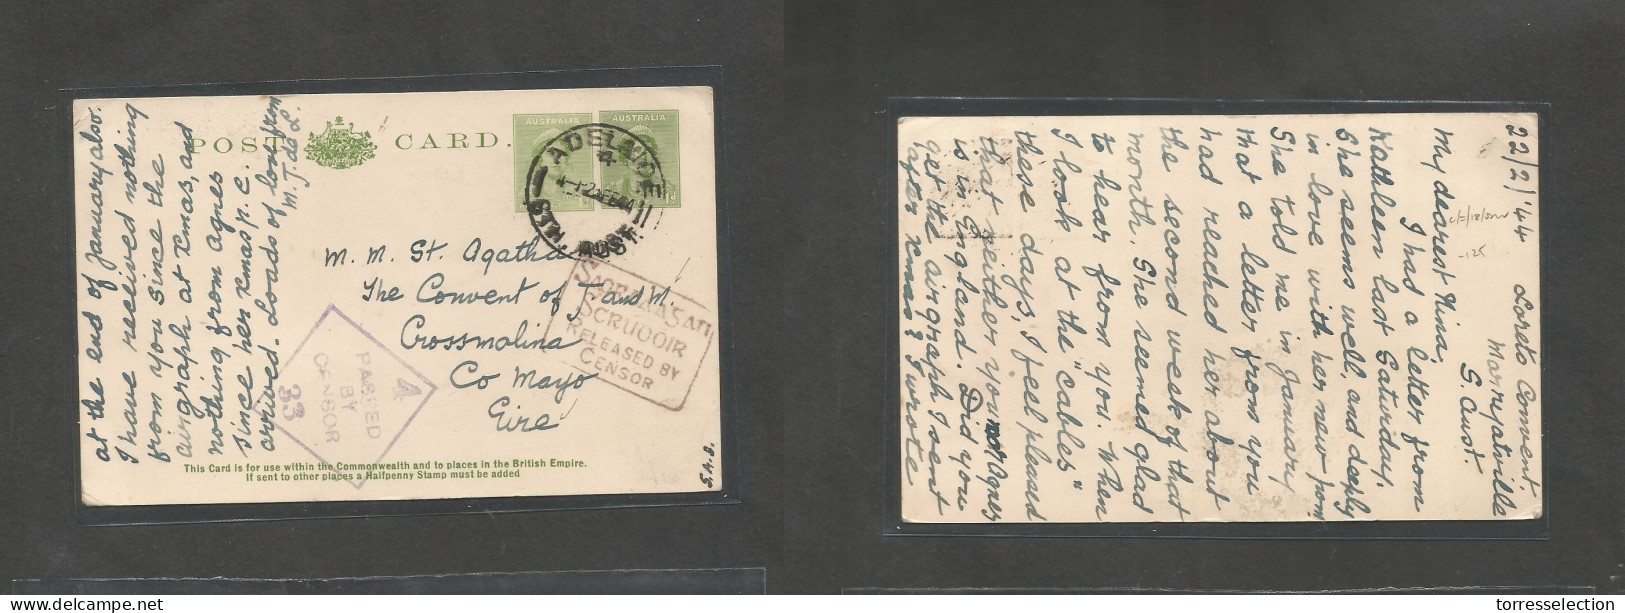 at the end of January also.
I have received nothing
from you since the
airgraph at Xmas, and
nothing from Agnes
since her Xmas p.c.
arrived. Loads of love from
M. T. de L.
POST CARD.
AUSTRALIA
AUSTRALIA
1d
ADELAIDE
M. M. St. Agatha
The Convent of J and M.
Crossmolina
Co Mayo
Eire
SCRÚDÓIR
RELEASED BY
CENSOR
4
PASSED
BY
CENSOR
33
This Card is for use within the Commonwealth and to places in the British Empire.
If sent to other places a Halfpenny Stamp must be added
S.4.8.
Loreto Convent.
Marryatville
S. Aust.
22/2/'44
My dearest Nina,
I had a letter from
Kathleen last Saturday.
She seems well, and deeply
in love with her new home
She told me in January
that a letter from you
had reached her about
the second week of that
month. She seemed glad
to hear from you. When
I look at the "cables"
these days, I feel pleased
that neither you nor Agnes
is in England. Did you
get the airgraph I sent
after Xmas? I wrote
-125
torresselection